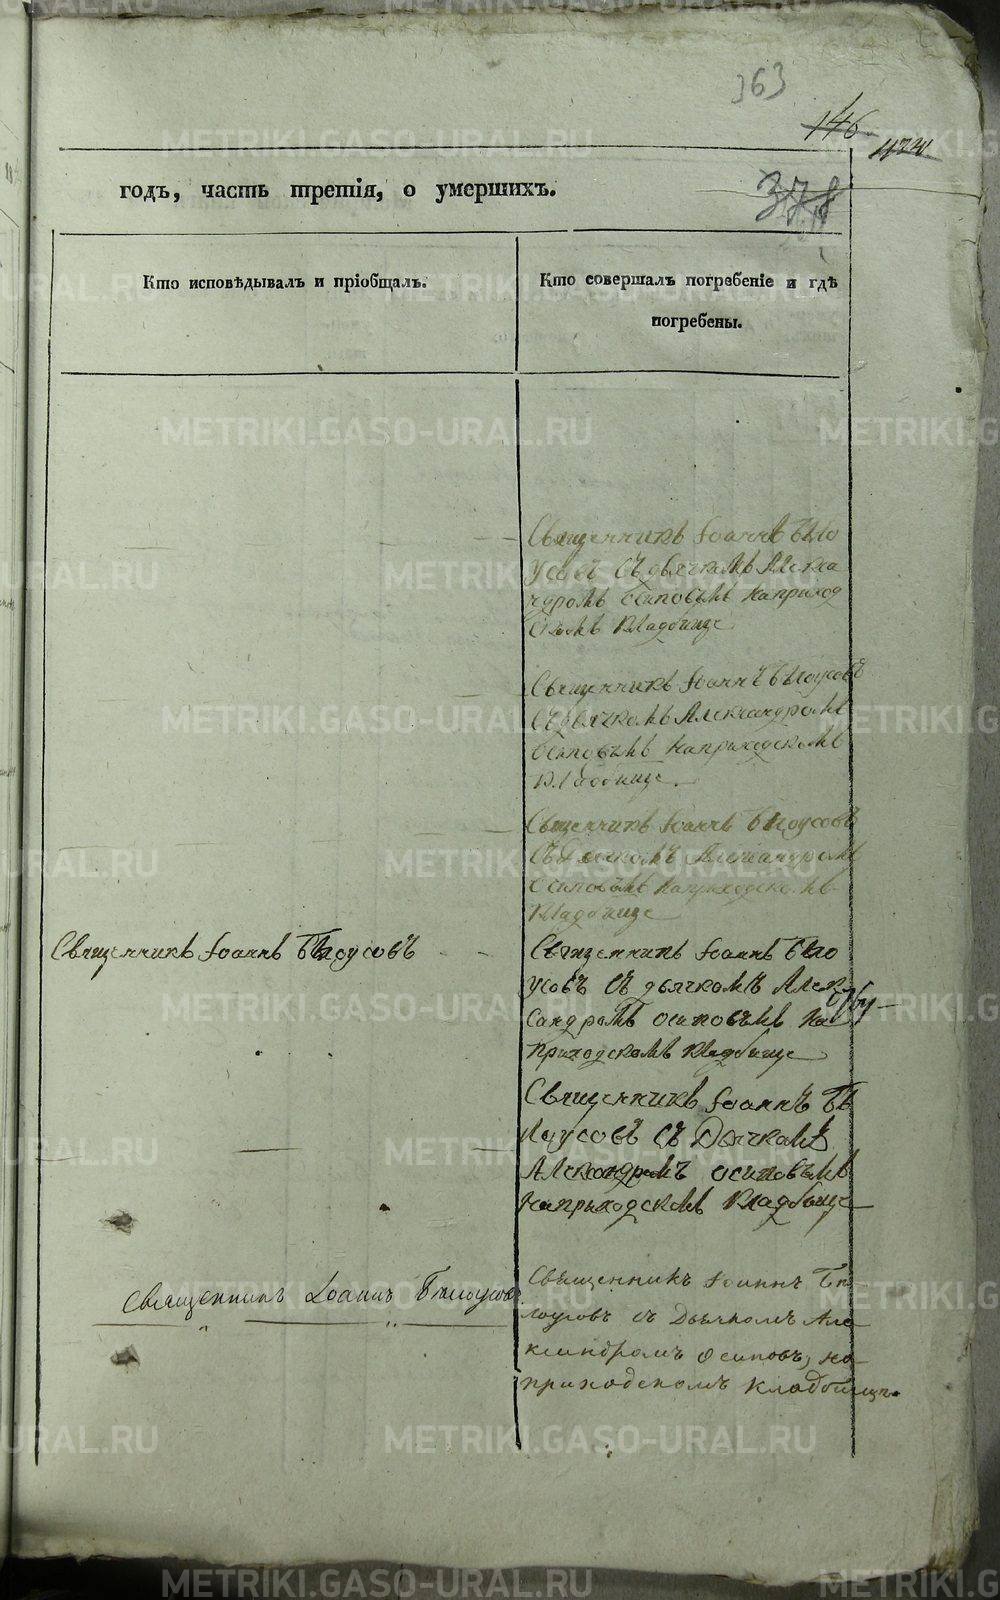 363
146
годъ, часть третія, о умершихъ.
378
Кто исповѣдывалъ и пріобщалъ.
Кто совершалъ погребеніе и гдѣ
погребены.
Священникъ Іоаннъ Бѣло
усовъ Съ дьячкомъ Алекса
ндромъ Осиповымъ на приход
скомъ Кладбище
Священникъ Іоаннъ Бѣлоусовъ
Съ дьячкомъ Александромъ
Осиповымъ на приходскомъ
Кладбище.
Священникъ Іоаннъ Бѣлоусовъ
Съ дьячкомъ Александромъ
Осиповымъ на приходскомъ
Кладбище
Священникъ Іоаннъ Бѣлоусовъ
Священникъ Іоаннъ Бѣло
усовъ Съ дьячкомъ Алек
сандромъ Осиповымъ на
приходскомъ Кладбище
Священникъ Іоаннъ Бѣ
лоусовъ Съ Дьячкомъ
Александромъ Осиповымъ
на приходскомъ Кладбище
Священникъ Іоаннъ Бѣлоусовъ
Священникъ Іоаннъ Бѣ
лоусовъ съ Дьячкомъ Але
ксандромъ Осиповъ, на
приходскомъ Кладбищѣ.
METRIKI.GASO-URAL.RU